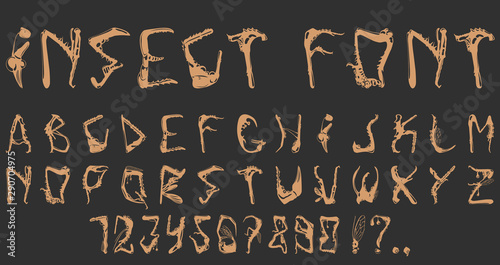 iNSECT FONT
A B C D E F G H i J K L M
N O P Q R S T U V W X Y Z
1 2 3 4 5 6 7 8 9 0 ! ? . ,
290704975